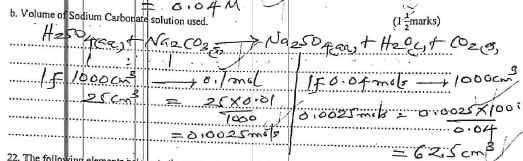 = 0.04M
b. Volume of Sodium Carbonate solution used. (1½marks)
H2SO4(aq) + Na2CO3 → Na2SO4(aq) + H2O(l) + CO2(g)
1 : 1
If 1000cm3 → 0.1mol If 0.04mols → 1000cm3
25cm3 = 25X0.01
1000
0.0025mols = 0.0025X100
0.04
= 0.0025mols
= 62.5cm3
22. The following elements